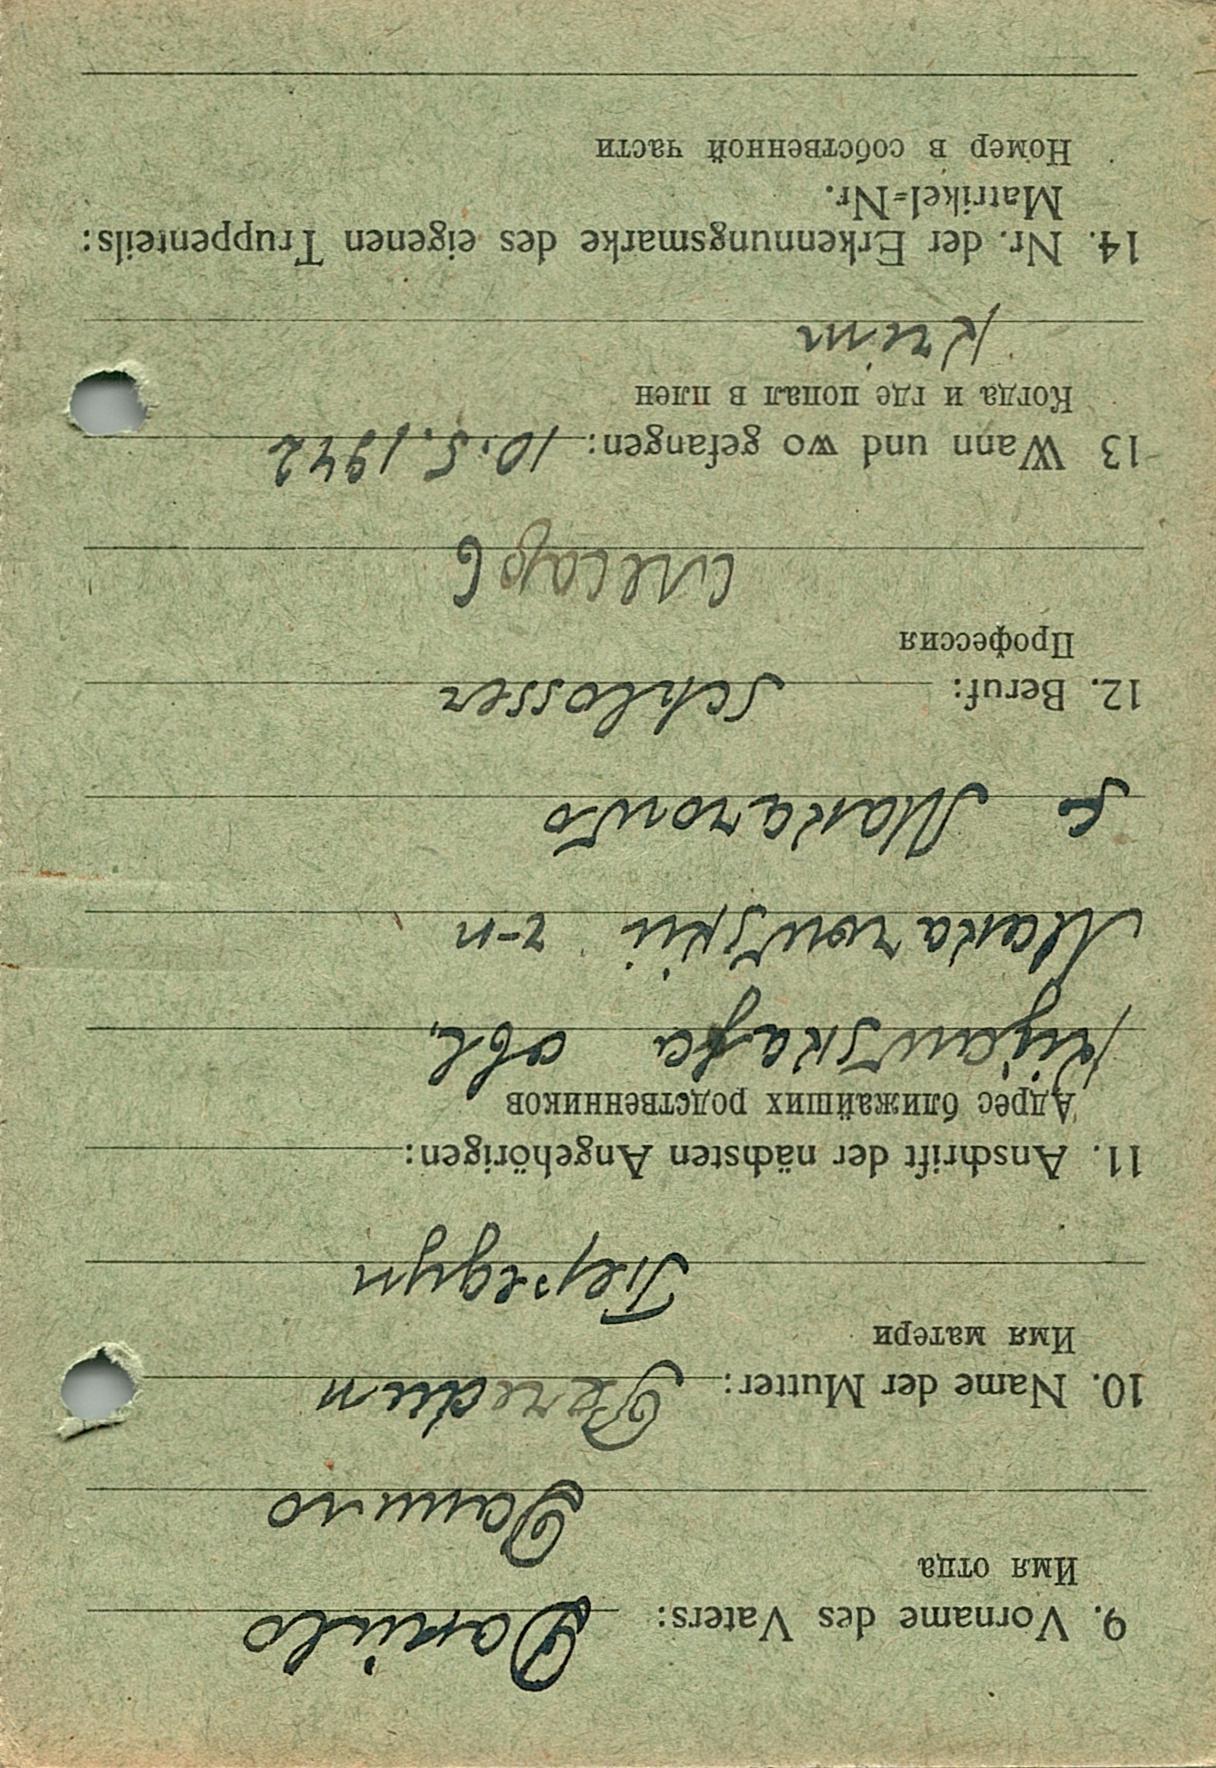 9. Vorname des Vaters: Danilo
Имя отца
Данило
10. Name der Mutter: Peredun
Имя матери
Передун
11. Anschrift der nächsten Angehörigen:
Адрес ближайших родственников
Kijewskaja obl.
Makarowskij r-n
s Makarowo
12. Beruf: Schlosser
Профессия
слесарь
13 Wann und wo gefangen: 10.5.1942
Когда и где попал в плен
Krim
14. Nr. der Erkennungsmarke des eigenen Truppenteils:
Matrikel=Nr.
Номер в собственной части